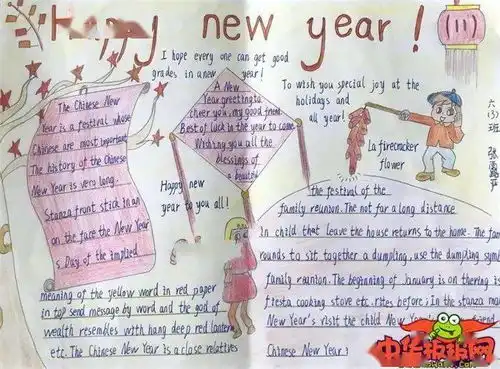 Happy new year!
I hope every one can get good
grades in a new year!
The Chinese New
Year is a festival whose
Chinese are most important
The history of the Chinese
New Year is very long.
Stanza front stick in an
on the face the New Year
s Day of the implied
meaning of the yellow word in red paper
in top send message by word and the god of
wealth resembles with hang deep red lantern
etc. The Chinese New Year is a close relatives
A New
Year greeting to
cheer you, my good friend
Best of luck in the year to come
Wishing you all the
blessings of
a beautiful
Happy new
year to you all!
To wish you special joy at the
holidays and
all year!
La firecracker
flower
六(3)班
the festival of the
family reunion. The not far a long distance
In child that leave the house returns to the home. The fam
rounds to sit together a dumpling, use the dumpling symb
family reunion. The beginning of January is on thering is
fiesta, cooking stove etc. rites before; In the stanza
New Year's visit the child New
Chinese New Year
中华振振网